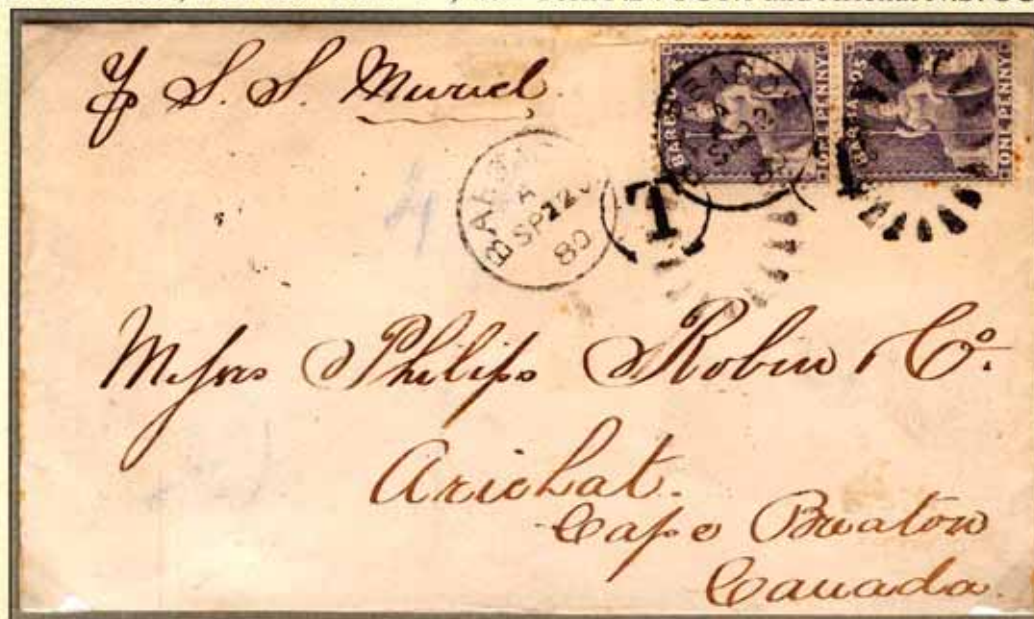 p S. S. Muriel.
BARBADOS ONE PENNY
BARBADOS ONE PENNY
BARBADOS
A
SP 22
80
T
4
Messrs Philips Robin & Co.
Arichat.
Cape Breaton
Canada.